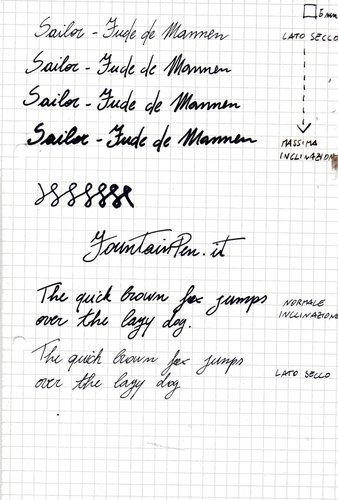 5 mm
Sailor - Fude de Mannen
LATO SECCO
Sailor - Fude de Mannen
Sailor - Fude de Mannen
Sailor - Fude de Mannen
MASSIMA
INCLINAZIONE
FountainPen.it
The quick brown fox jumps
over the lazy dog.
NORMALE
INCLINAZIONE
The quick brown fox jumps
over the lazy dog
LATO SECCO